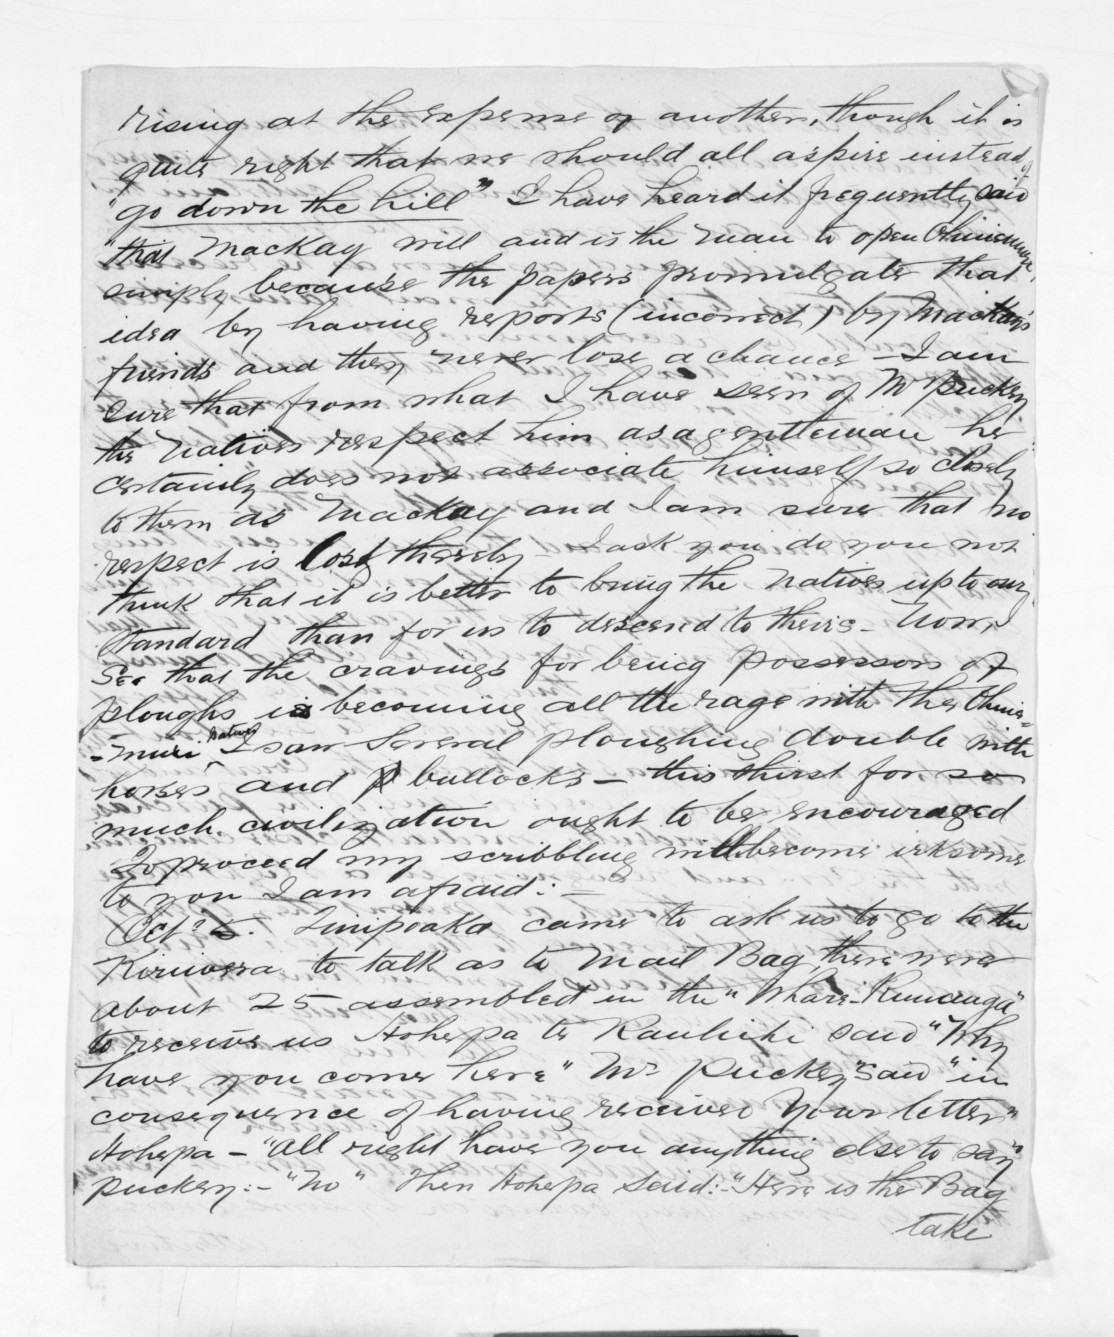 rising at the expense of another, though it is
quite right that we should all aspire instead of
"go down the hill" I have heard it frequently said
"that MacKay will and is the man to open Ohinemuri,
simply because the papers promulgate that
idea by having reports (incorrect) by MacKay's
friends and they never lose a chance — I am
sure that from what I have seen of Mr Puckey
the Natives respect him as a gentleman he
certainly does not associate himself so closely
to them as MacKay and I am sure that no
respect is lost thereby — I ask you do you not
think that it is better to bring the Natives up to our
standard than for us to descend to theirs — Now, I
See that the cravings for being possessors of
ploughs is becoming all the rage with the Ohine-
-muri Natives I saw several ploughing double with
horses and bullocks — this thirst for so
much civilization ought to be encouraged
To proceed my scribbling will become irksome
to you I am afraid: —
Oct 5. Tinipoaka came to ask us to go to the
Kiriwera to talk as to Mail Bag, there were
about 25 assembled in the "Whare-Runanga"
to receive us Hohepa te Rauhihi said "Why
have you come here" Mr Puckey "said "in
consequence of having received your letter"
Hohepa — "All right have you anything else to say"
Puckey: — "No" Then Hohepa said: — "Here is the Bag
take